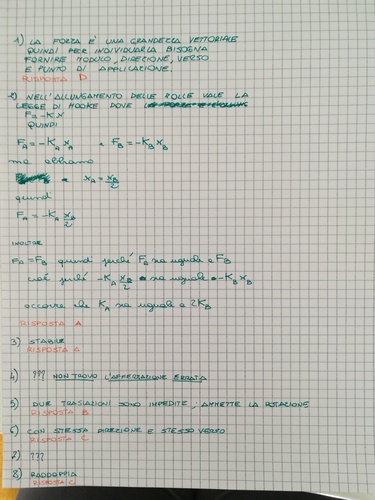 1) LA FORZA E' UNA GRANDEZZA VETTORIALE
QUINDI PER INDIVIDUARLA BISOGNA
FORNIRE MODULO, DIREZIONE, VERSO
E PUNTO DI APPLICAZIONE.
RISPOSTA D
2) NELL'ALLUNGAMENTO DELLE MOLLE VALE LA
LEGGE DI HOOKE DOVE
F=-KX
QUINDI
F_A = -K_A X_A e F_B = -K_B X_B
ma abbiamo
X_A = X_B/2
quindi
F_A = -K_A X_B/2
INOLTRE
F_A = F_B quindi perché F_A sia uguale a F_B
cioè perché -K_A X_B/2 sia uguale a -K_B X_B
occorre che K_A sia uguale a 2K_B
RISPOSTA A
3) STABILE
RISPOSTA A
4) ??? NON TROVO L'AFFERMAZIONE ERRATA
5) DUE TRASLAZIONI SONO IMPEDITE, AMMETTE LA ROTAZIONE
RISPOSTA B
6) CON STESSA DIREZIONE E STESSO VERSO
RISPOSTA C
7) ???
8) RADDOPPIA
RISPOSTA C